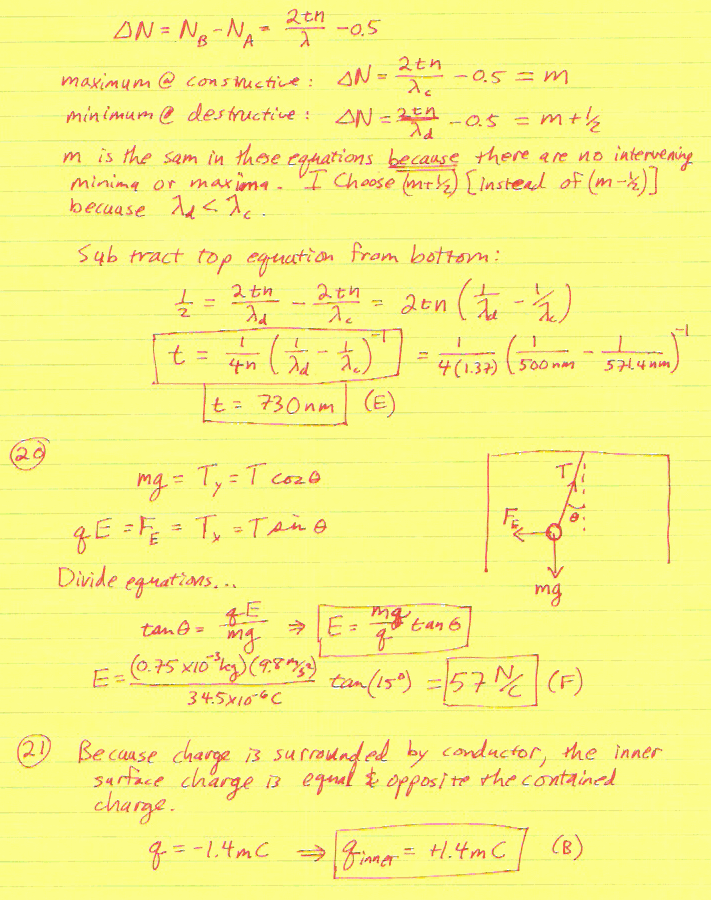 ΔN = N_B - N_A = 2tn/λ - 0.5
maximum @ constructive : ΔN = 2tn/λ_c - 0.5 = m
minimum @ destructive : ΔN = 2tn/λ_d - 0.5 = m + 1/2
m is the sam in these equations because there are no intervening
minima or maxima. I Choose (m+½) [instead of (m-½)]
becuase λ_d < λ_c.
Subtract top equation from bottom:
1/2 = 2tn/λ_d - 2tn/λ_c = 2tn (1/λ_d - 1/λ_c)
t = 1/4n (1/λ_d - 1/λ_c)^-1 = 1/4(1.37) (1/500nm - 1/571.4nm)^-1
t = 730nm (E)
20
mg = T_y = T cosθ
qE = F_E = T_x = T sinθ
Divide equations...
tanθ = qE/mg ⇒ E = mg/q tanθ
E = (0.75 x10^-3 kg)(9.8 m/s²)/34.5x10^-6 C tan(15°) = 57 N/C (F)
T
F_E
θ
mg
21) Because charge is surrounded by conductor, the inner
surface charge is equal & opposite the contained
charge.
q = -1.4mC ⇒ q_inner = +1.4mC (B)